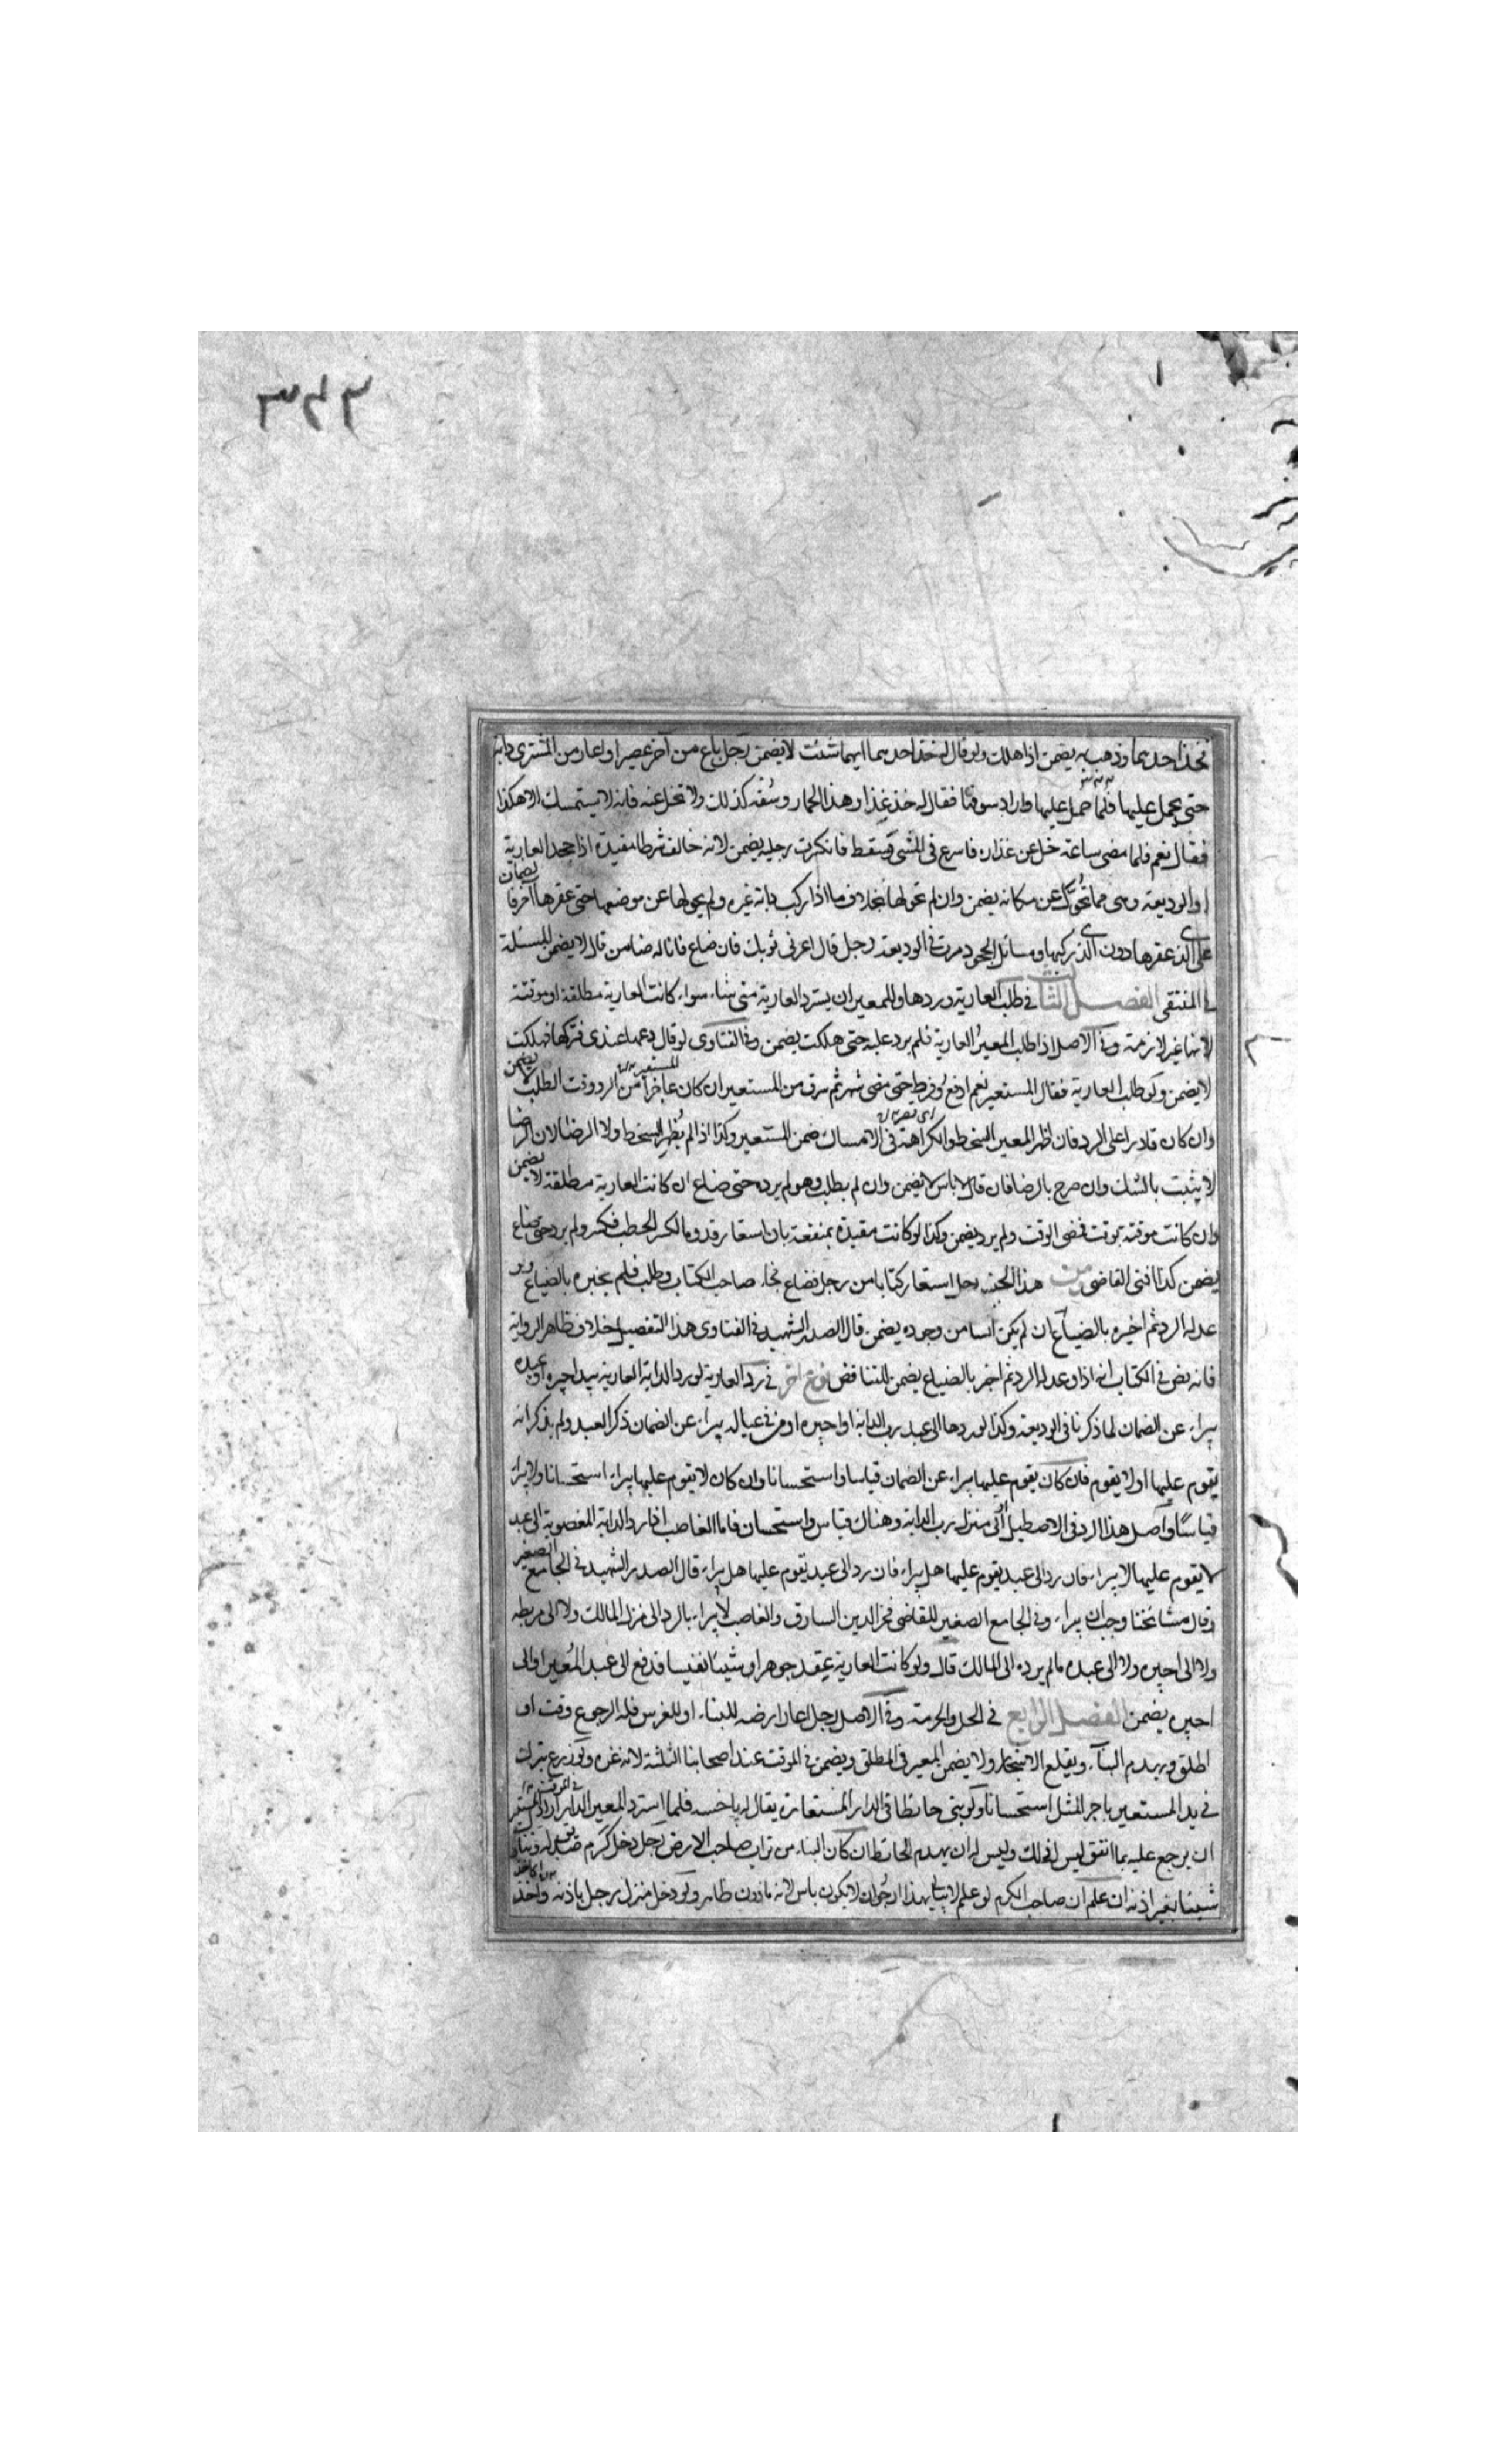 فخذ احديهما وذهب به يضمن اذا هلك ولو قال له خذ احديهما ايهما شئت لا يضمن رجل باع من آخر عصيرا واعار من المشترى دابته
حتى يحمل عليها فلما حمل عليها واراد سوقها فقال له خذ عذا وهذا الحمار وسقه كذلك ولا تخل عنه فانه لا يستمسك الا هكذا
فقال نعم فلما مضى ساعة خل عن عذاره فاسرع فى المشى فسقط فانكسرت رجله يضمن لانه خالف شرطا مفيدا اذا جحد العارية
او الوديعة وهى مما تحول عن مكانه يضمن وان لم تحولها بخلاف ما اذا ركب دابة غيره ولم يحولها عن موضعها حتى عقرها آخر فالضمان
على الذى عقرها دون الذى ركبها ومسائل الجحود مرت فى الوديعة رجل قال اعرنى ثوبك فان ضاع فانا له ضامن قال لا يضمن المسئلة
فى المنتقى الفصل الثالث فى طلب العارية وردها وللمعير ان يسترد العارية متى شاء سواء كانت العارية مطلقة او موقتة
لانها غير لازمة وفى الاصل اذا طلب المعير العارية فلم يرد عليه حتى هلكت يضمن وفى الفتاوى لو قال دعها عندى فتركها فهلكت
لا يضمن ولو طلب العارية فقال المستعير نعم ادفع وفرط حتى مضى شهر ثم سرق من المستعير ان كان عاجزا من الرد وقت الطلب لا يضمن
وان كان قادرا على الرد فان اظهر المعير السخط والكراهة فى الامساك ضمن المستعير وكذا اذا لم يظهر السخط ولا الرضا لان الرضا
لا يثبت بالشك وان صرح بالرضا فان قال لا باس لا يضمن وان لم يطلب وهو لم يرده حتى ضاع ان كانت العارية مطلقة لا يضمن
وان كانت موقتة بوقت فمضى الوقت ولم يرد يضمن وكذا لو كانت مقيدة بمنفعة بان استعار قدوما لكسر الحطب فكسر ولم يرد حتى ضاع
يضمن كذا افتى القاضى ومن هذا الجنس رجل استعار كتابا من رجل فضاع فجاء صاحب الكتاب وطلب فلم يخبره بالضياع
وعد له الرد ثم اخبره بالضياع ان لم يكن آيسا من وجوده يضمن قال الصدر الشهيد فى الفتاوى هذا التفصيل خلاف ظاهر الرواية
فانه نص فى الكتاب انه اذا وعد له الرد ثم اخبر بالضياع يضمن للتناقض نوع آخر فى رد العارية لو رد الدابة العارية بيد اجيره او عبده
يبراء عن الضمان لما ذكرنا فى الوديعة وكذا لو ردها الى عبد رب الدابة او اجيره او من فى عياله يبراء عن الضمان ذكر العبد ولم يذكر انه
يقوم عليها او لا يقوم فان كان يقوم عليها يبراء عن الضمان قياسا واستحسانا وان كان لا يقوم عليها يبراء استحسانا ولا يبراء
قياسًا واصل هذا الرد فى الاصطبل او فى منزل رب الدابة وهناك قياس واستحسان فاما الغاصب اذا رد الدابة المغصوبة الى عبد
لا يقوم عليها لا يبراء فان رد الى عبد يقوم عليها هل يبراء فان رد الى عبد يقوم عليها هل يبراء قال الصدر الشهيد فى الجامع الصغير
وقال مشائخنا وجب ان يبراء وفى الجامع الصغير للقاضى فخر الدين السارق والغاصب لا يبراء بالرد الى منزل المالك ولا الى مربطه
ولا الى اجيره ولا الى عبده ما لم يرده الى المالك قال ولو كانت العارية عقد جوهر او شيئا نفيسا فدفع الى عبد المعير او الى
اجيره يضمن الفصل الرابع فى الحل والحرمة وفى الاصل رجل اعار ارضه للبناء او للغرس فله الرجوع وقت او
اطلق ويهدم البناء ويقلع الاشجار ولا يضمن المعير فى المطلق ويضمن فى الموقت عند اصحابنا الثلثة لانه غره ولو زرع يترك
فى يد المستعير باجر المثل استحسانا ولو بنى حائطا فى الدار المستعارة يقال له پاخسه فلما استرد المعير الدار اراد المستعير
ان يرجع عليه بما انفق ليس له ذلك وليس له ان يهدم الحائط ان كان البناء من تراب صاحب الارض رجل دخل كرم صديق له وتناول
شيئا بغير اذنه ان علم ان صاحب الكرم لو علم لا يبالى بهذا ارجو ان لا يكون باس لانه ماذون ظاهر ولو دخل منزل رجل باذنه واخذ